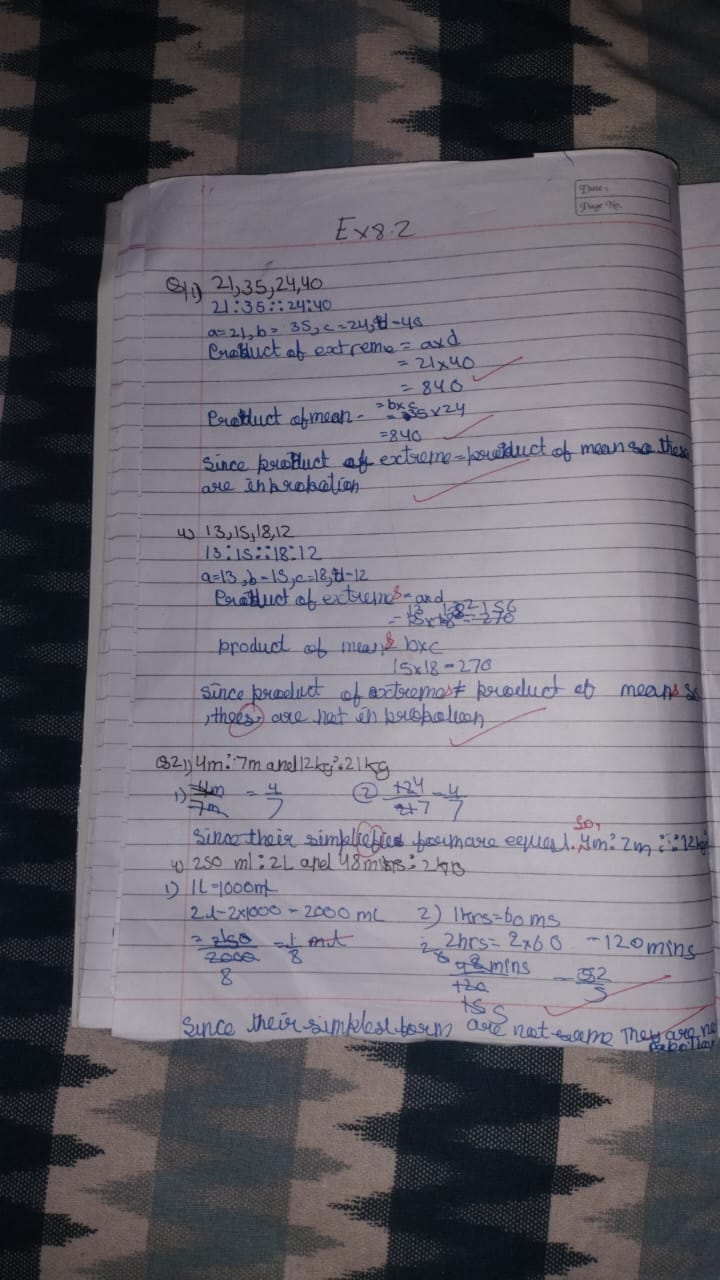 Date :
Page No.
Ex 8.2
Q1 i) 21,35,24,40
21:35::24:40
a=21, b= 35, c=24, d=40
Product of extreme = axd
= 21x40
= 840
Product of mean = bxc
= 35x24
=840
Since product of extreme = product of mean so these
are in
ii) 13,15,18,12
13:15::18:12
a=13, b=15, c=18, d=12
Product of extremes = axd
product of means bxc
15x18=270
Since product of extremes ≠ product of means so
are not in
Q2 i) 4m:7m and 12kg:21kg
i) 4m/7m = 4/7 ② 12 4/21 7 = 4/7
Since their form are equal. So, 4m: 7m :: 12kg
ii) 250 ml : 2L and 48 mins : 2hrs
1) 1L=1000ml
2L=2x1000=2000 mL 2) 1hrs=60ms
= 250/2000 = 1/8 2hrs= 2x60 =120mins
8 48mins/120 = 2/5
Since their simplest form are not same They are